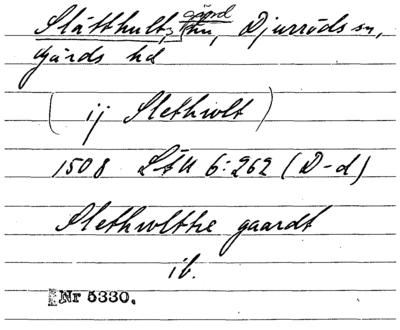 Slätthult, gård, Djurröds sn,
Gärds hd
(ij Slethwlt)
1508 LÄU 6:262 (D-d)
Slethwlthe gaardt
ib.
Nr 5330.